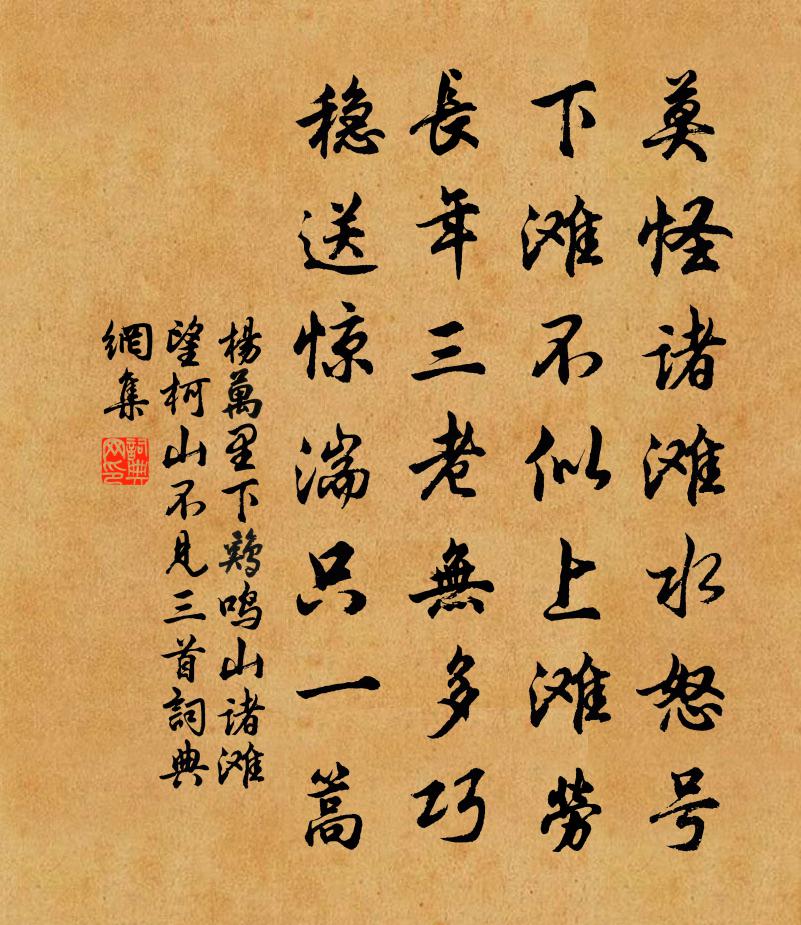 莫怪诸滩水怒号
下滩不似上滩劳
長年三老無多巧
稳送惊湍只一篙
楊萬里下鷄鸣山诸滩
望柯山不見三首詞典
網集
詞典
网印